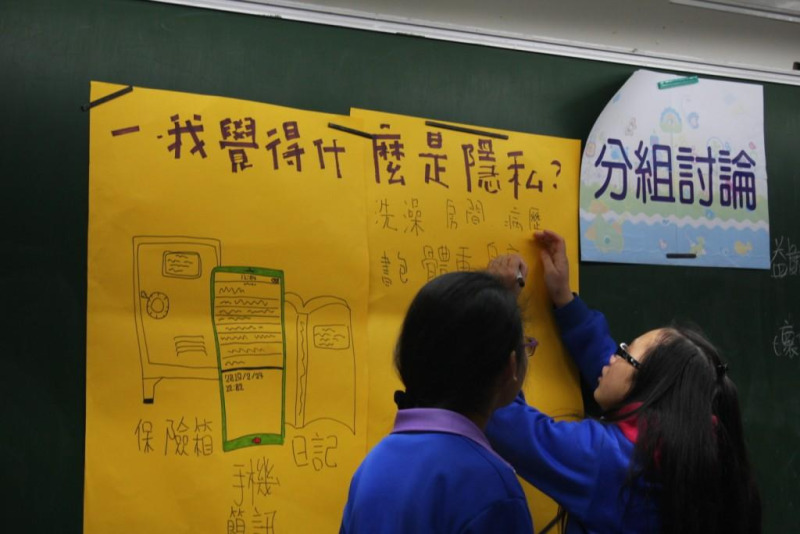 一.我覺得什麼是隱私?
分組討論
洗澡 房間 病歷
書包 體重
保險箱
日記
手機
簡訊